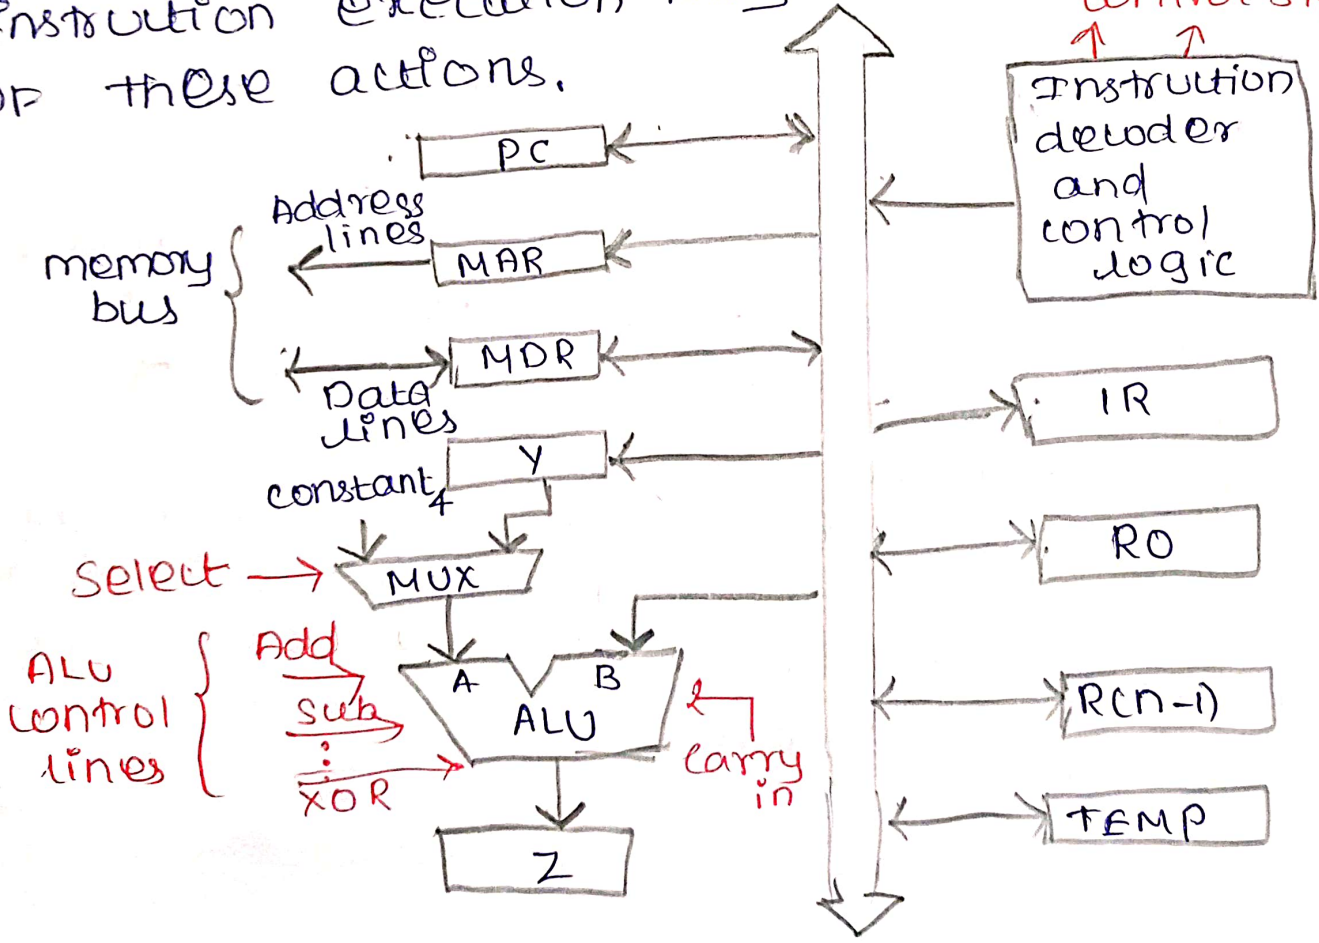 instruction
of these actions.
PC
Address
lines
MAR
memory
bus
MDR
Data
lines
Y
constant 4
Select
MUX
ALU
control
lines
Add
Sub
⋮
XOR
A
B
ALU
Carry
in
Z
Instruction
decoder
and
control
logic
IR
R0
R(n-1)
TEMP